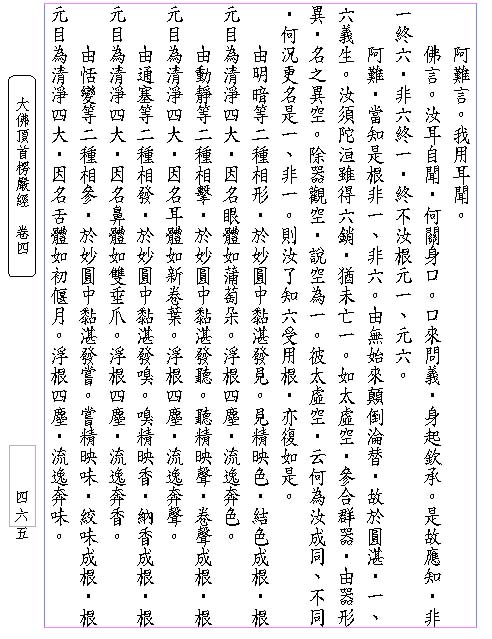 阿難言。我用耳聞。
佛言。汝耳自聞。何關身口。口來問義。身起欽承。是故應知。非
一終六。非六終一。終不汝根元一、元六。
阿難。當知是根非一、非六。由無始來顛倒淪替。故於圓湛。一、
六義生。汝須陀洹雖得六銷。猶未亡一。如太虛空。參合群器。由器形
異。名之異空。除器觀空。說空為一。彼太虛空。云何為汝成同、不同
。何況更名是一、非一。則汝了知六受用根。亦復如是。
由明暗等二種相形。於妙圓中黏湛發見。見精映色。結色成根。根
元目為清淨四大。因名眼體如蒲萄朵。浮根四塵。流逸奔色。
由動靜等二種相擊。於妙圓中黏湛發聽。聽精映聲。卷聲成根。根
元目為清淨四大。因名耳體如新卷葉。浮根四塵。流逸奔聲。
由通塞等二種相發。於妙圓中黏湛發嗅。嗅精映香。納香成根。根
元目為清淨四大。因名鼻體如雙垂爪。浮根四塵。流逸奔香。
由恬變等二種相參。於妙圓中黏湛發嘗。嘗精映味。絞味成根。根
元目為清淨四大。因名舌體如初偃月。浮根四塵。流逸奔味。
大佛頂首楞嚴經 卷四
四六五